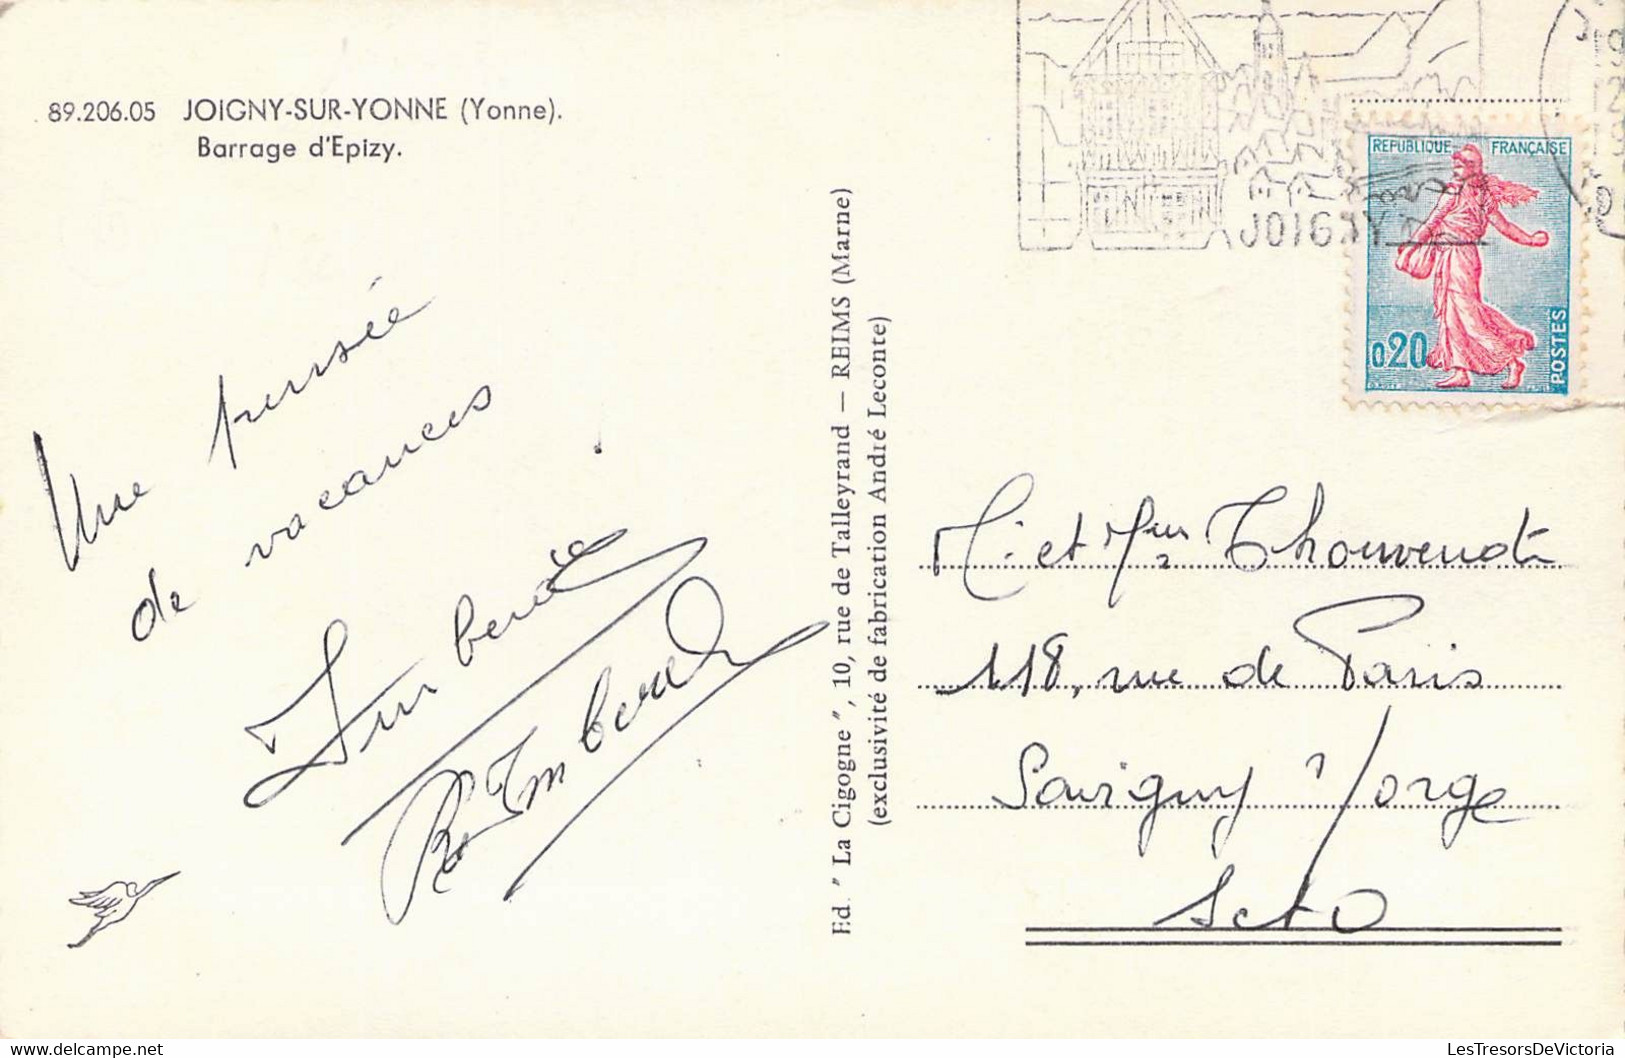 89.206.05 JOIGNY-SUR-YONNE (Yonne).
Barrage d'Epizy.
Une pensée
de vacances !
Ed. "La Cigogne", 10, rue de Talleyrand — REIMS (Marne)
(exclusivité de fabrication André Leconte)
JOIGNY
REPUBLIQUE FRANÇAISE
0.20
POSTES
M. et Mme Thouvenot
118, rue de Paris
Savigny s/ Orge
S et O
LesTresorsDeVictoria